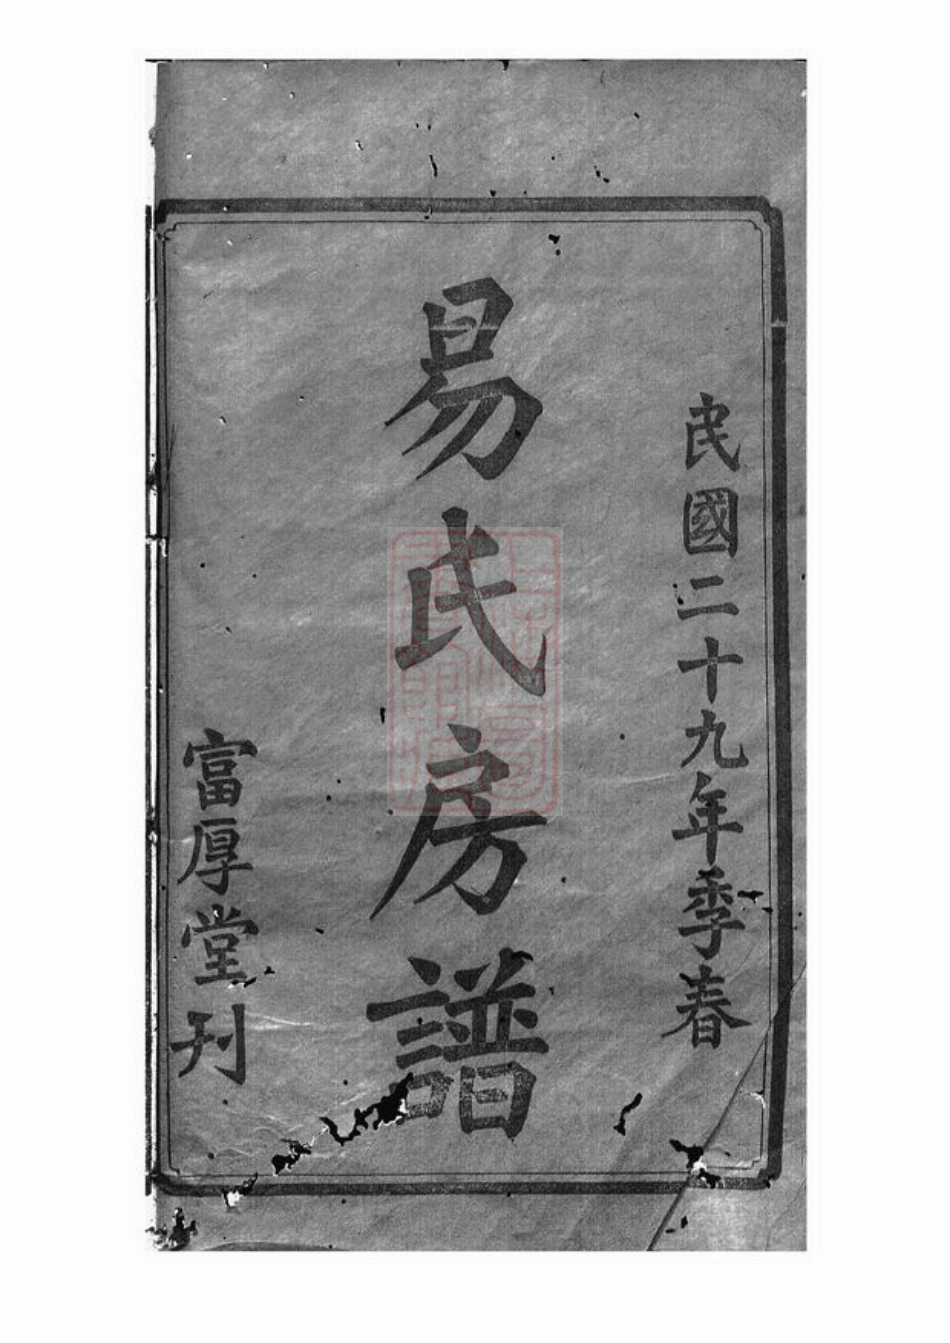 民國二十九年季春
易氏房譜
富厚堂刊